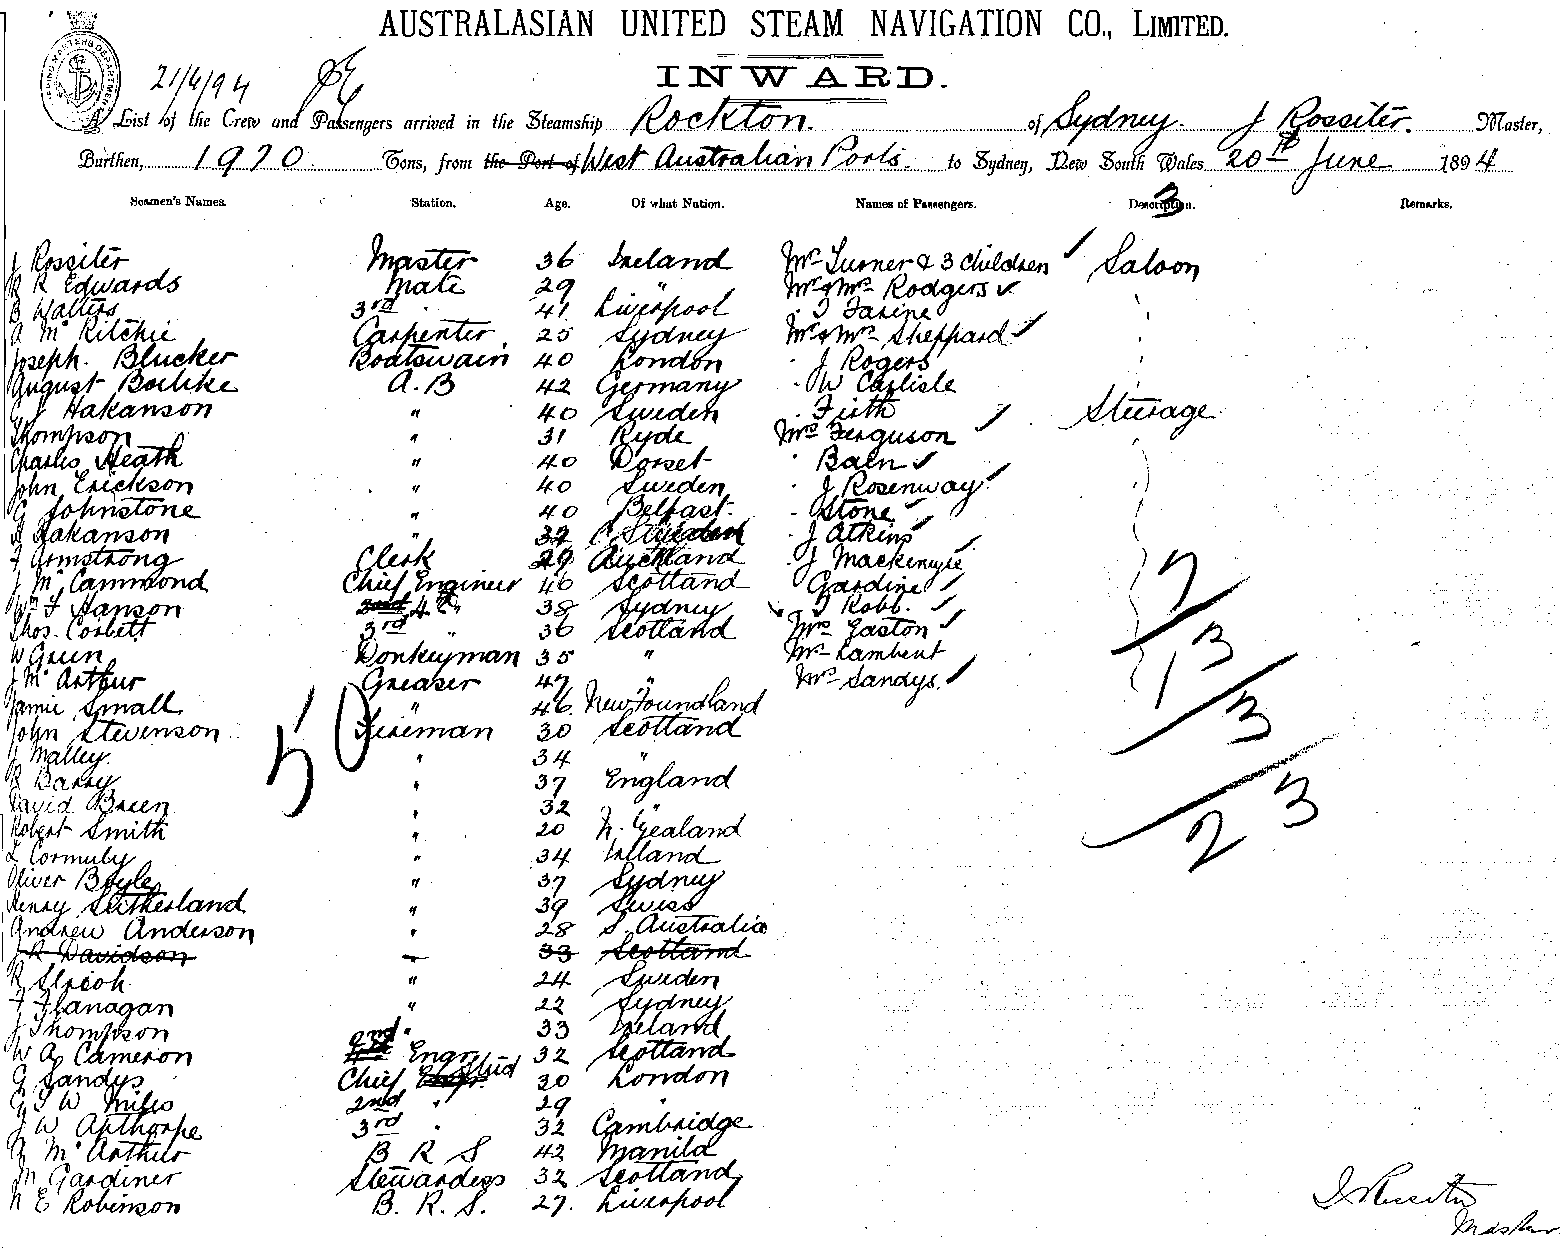 AUSTRALASIAN UNITED STEAM NAVIGATION CO., LIMITED.
21/6/94
INWARD.
A List of the Crew and Passengers arrived in the Steamship Rockton. of Sydney. J Rossiter. Master,
Burthen, 1970 Tons, from the Port of West Australian Ports. to Sydney, New South Wales 20th June 1894
Seamen's Names. Station. Age. Of what Nation. Names of Passengers. Description. 3 Remarks.
J Rossiter Master 36 Ireland Mrs Turner & 3 children Saloon
R R Edwards Mate 29 " Mr & Mrs Rodgers
B Walters 3rd 41 Liverpool
A Mc Ritchie Carpenter 25 Sydney Mr & Mrs Sheppard
Joseph Blucker Boatswain 40 London J Rogers
August A.B 42 Germany W Carlisle
Hakanson " 40 Sweden Firth Steerage
Thompson " 31 Ryde Mrs Ferguson
Charles Heath " 40 Dorset Baen
John Erickson " 40 Sweden J Rosenway
G Johnstone " 40 Belfast Stone
Hakanson " Sweden J Atkins
F Armstrong Clerk 29 Auckland J Mackenzie
J Mc Cammond Chief Engineer 46 Scotland Gardine
Wm F Hanson 2nd 4th 38 Sydney Robb. 7
Thos. Corbett 3rd " 36 Scotland Mrs Easton
W Green Donkeyman 35 " Mrs Lambert 13
J Mc Arthur Greaser 47 " Mrs Sandys
Jamie Small " 46 New Foundland
John Stevenson Fireman 30 Scotland 3
50
J Malley " 34 "
R Barry " 37 England
David Breen " 32 "
23
Robert Smith " 20 N. Zealand
L Cormuly " 34 Ireland
Oliver Boyle " 37 Sydney
Henry Sutherland " 39 Swiss
Andrew Anderson " 28 S. Australia
J R Davidson " 33 Scotland
R " 24 Sweden
F Flanagan " 22 Sydney
J Thompson " 33 Ireland
W A Cameron 2nd Engr 32 Scotland
G Sandys Chief Engr. Stud 30 London
G S W Miles 2nd " 29 "
J W Apthorpe 3rd " 32 Cambridge
Mc Arthur B R S 42 Manila
M Gardiner Stewardess 32 Scotland
N E Robinson B. R. S. 27 Liverpool
J Rossiter
Master